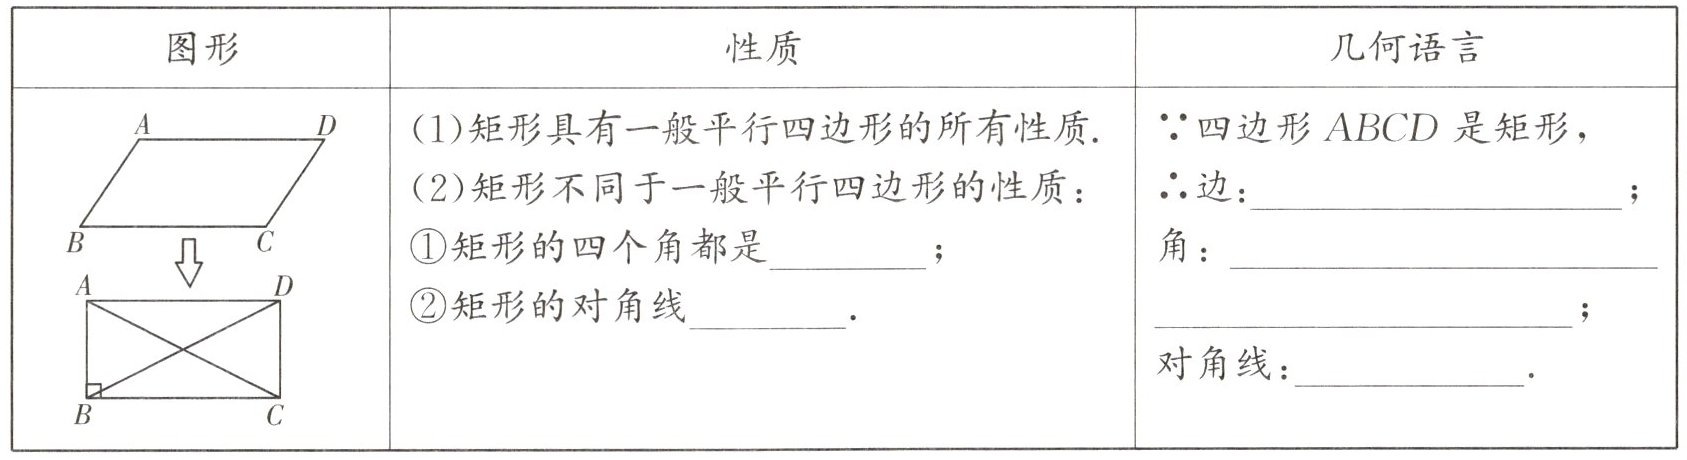 图形 性质 几何语言
A D
B C
A D
B C
(1)矩形具有一般平行四边形的所有性质.
(2)矩形不同于一般平行四边形的性质:
①矩形的四个角都是________;
②矩形的对角线________.
∵四边形 ABCD 是矩形,
∴边:____________________;
角:______________________
______________________;
对角线:____________.